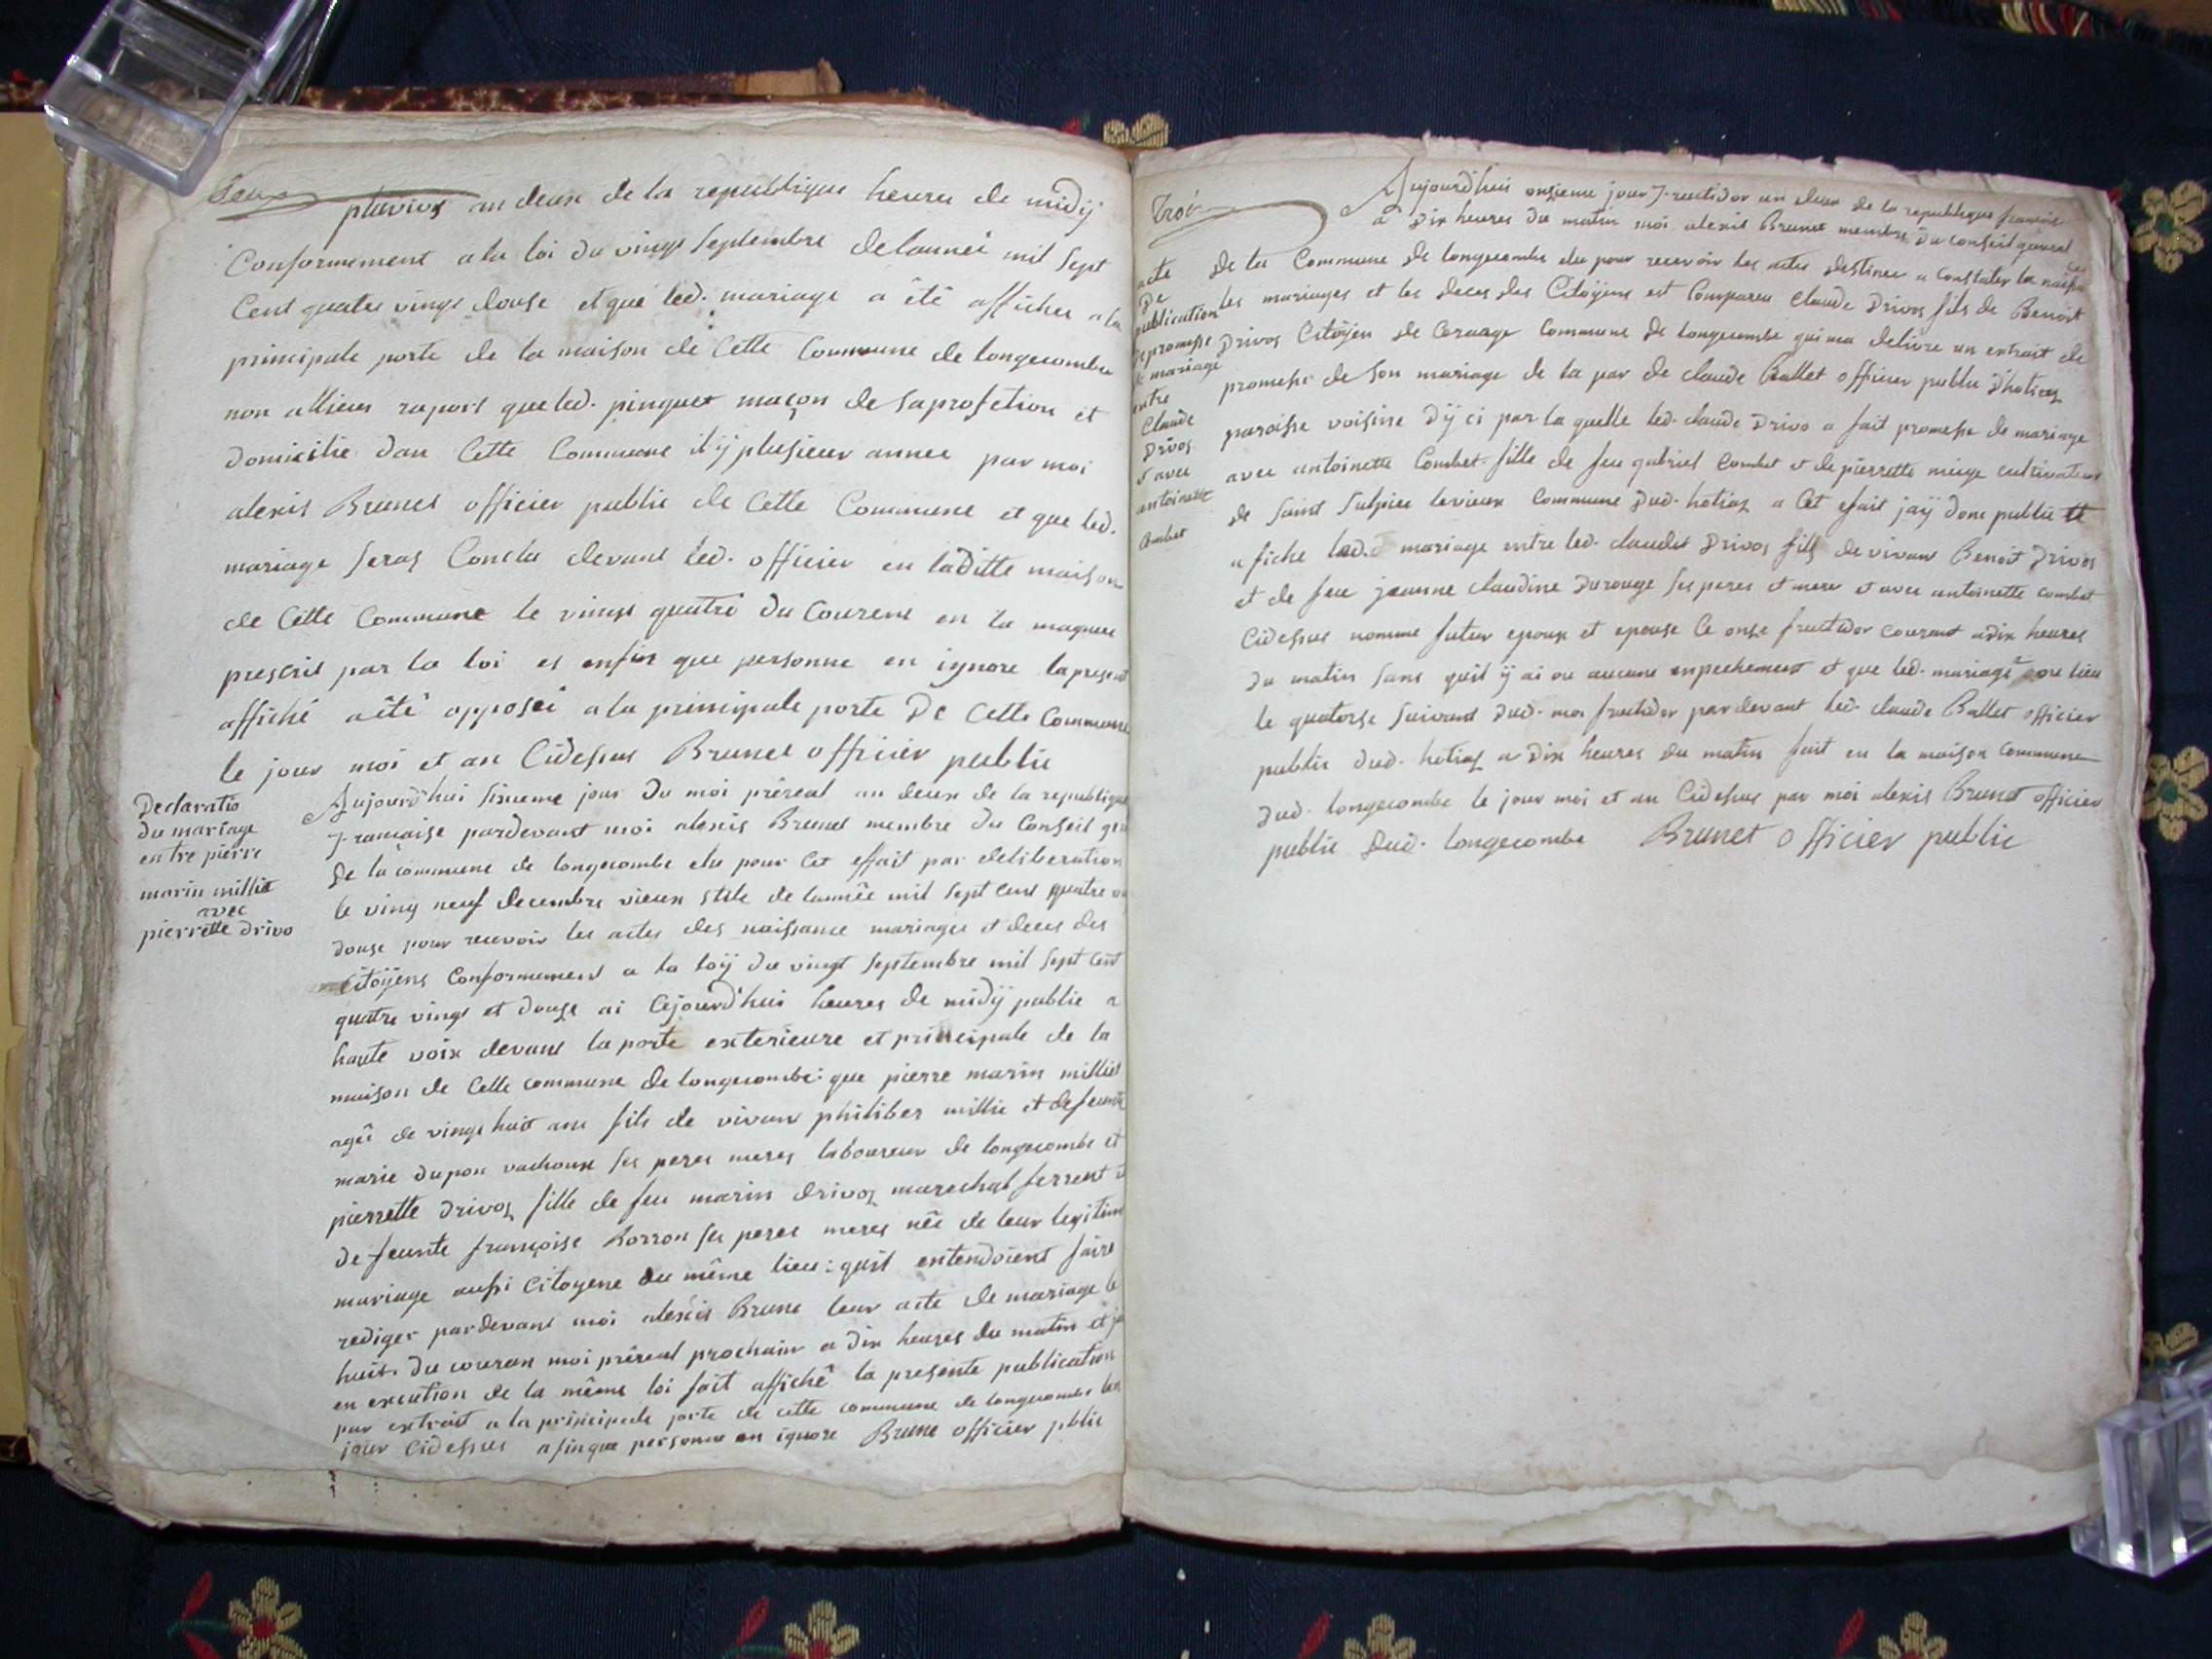 Deux
pluvios an deux de la republique heures de midÿ
Conformement a la loi du vingt Septembre delannéé mil Sept
Cent quatre vingt douse et que led. mariage a êtê afficher a la
principale porte de la maison de Cette Commune de longecombe
non allieur raport que led. pinguet maçon de saprofetion et
domicilié dan Cette Commune il ÿ plusieur année par moi
alexis Brunet officier public de Cette Commune et que led.
mariage Seras Conclu devant led. officier en laditte maison
de Cette Commune le vingt quatre du Courent en la magnere
prescrit par la loi et enfin que personne en ignore la present
affiché aêtê opposéé a la principale porte De Cette Commune
le jour moi et an Cidessus Brunet officier public
Declaratio
du mariage
entre pierre
marin millie
avec
pierrette drivo
Aujourd'hui sixieme jour Du moi prêreal an deux de la republique
francaise pardevant moi alexis Brunet membre du Conseil gen
De la commune de longecombe elu pour Cet effait par deliberation
le ving neuf decembre vieux stile de lannêe mil sept cent quatre vin
douse pour recevoir les actes des naissance mariages et deces des
Citoÿens Conformement a la loÿ du vingt septembre mil sept cent
quatre vingt et douse ai Cejourd'hui heures de midÿ publie a
haute voix devant la porte exterieure et principale de la
maison de Cette commune de longecombe: que pierre marin milliet
agêe de vingt huit ans fils de vivant philiber millie et defeunte
marie dupon vachoux ses peres meres laboureur de longecombe et
pierrette Drivoz fille de feu marin drivoz marechal ferrent et
De feunte françoise Borron ses peres meres nêe de leur legitime
mariage aussi Citoyene du même lieu: quil entendoient faire
rediger pardevant moi alexis Brune leur acte de mariage le
huit du couran moi prêreal prochain a dix heures du matin et jai
en execution de la même loi fait affichê la presente publication
par extrait a la principale porte de cette commune de longecombe les
jour Cidessus afinque personne en ignore Brune officier pblic
Trois
acte
De
publication
de promesse
de mariage
entre
Claude
Drivos
et avec
antoinette
Combet
Aujourd'hui onzieme jour fructidor an deux de la republique francoise
a dix heures du matin moi alexis Brunet membre du conseil general
de la Commune de longecombe elu pour recevoir les actes destines a Constater les naissa
les mariages et les deces des Citoÿens est Comparu Claude Drivos fils de Benoit
Drivos Citoÿen de Ceruage Commune de longecombe qui ma delivre un extrait de
promesse de son mariage de la par de claude Ballet officier public d'hotiaz
paroisse voisine dÿ ci par la quelle led. claude Drivo a fait promesse de mariage
avec antoinette Combet fille de feu gabriel Combet et de pierrette miege cultivateur
de Saint Sulpice levieux Commune Dud. hotiaz a Cet efait jaÿ donc publie et
a fiche led. mariage entre led. claude Drivos fils de vivant Benoit Drivos
et de feu jeanne claudine Durouge ses peres et mere et avec antoinette combet
Cidessus nomme futur epoux et epouse Ce onse fructidor courant adix heures
du matin sans quil ÿ ai ou aucune enpechement et que led. mariage aore lieu
le quatorse suivant Dud. moi fructidor pardevant led. claude Ballet officier
public dud. hotiaz a dix heures du matin fait en la maison commune
Dud. longecombe le jour moi et an Cidessus par moi alexis Brunet officier
public Dud. longecombe Brunet officier public